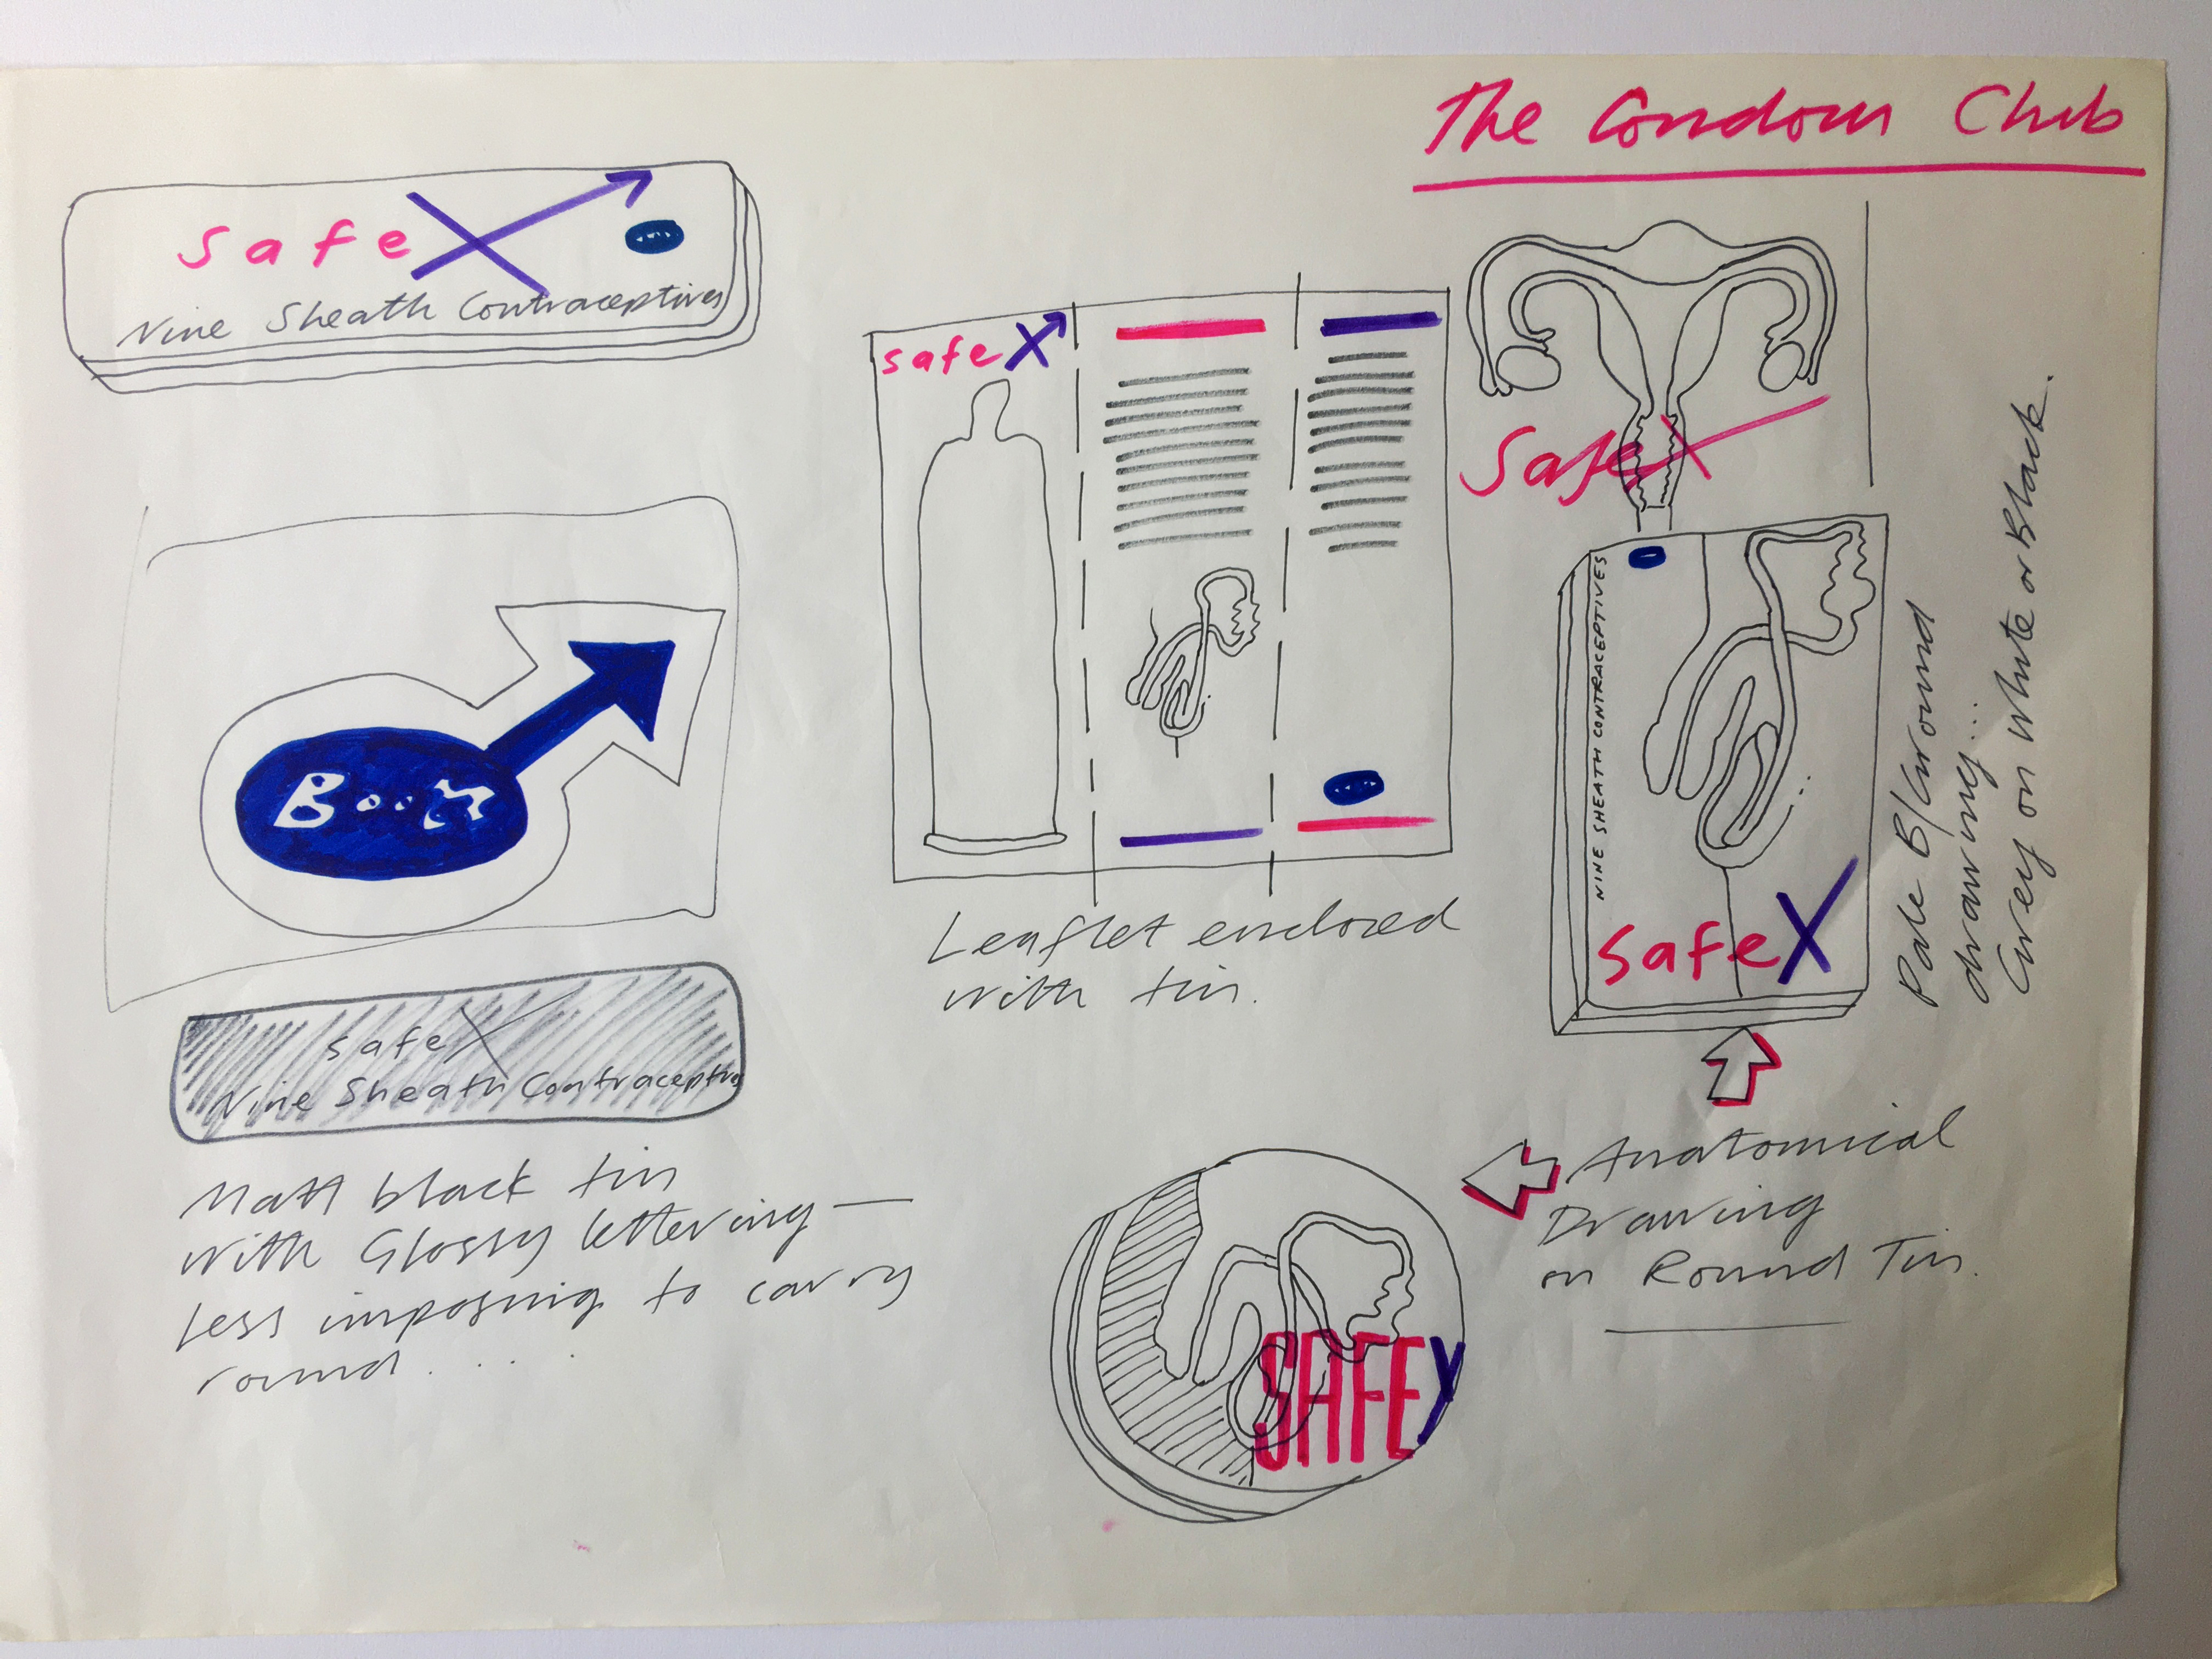 The Condom Club
safeX
Nine Sheath Contraceptives
Boots
safeX
Nine Sheath Contraceptives
Matt black tin
with Glossy lettering —
less imposing to carry
round.....
safeX
Leaflet enclosed
with tin.
SafeX
NINE SHEATH CONTRACEPTIVES
safeX
Pale B/Ground
drawing...
Grey on white or Black.
Anatomical
Drawing
on Round Tin.
SAFEX